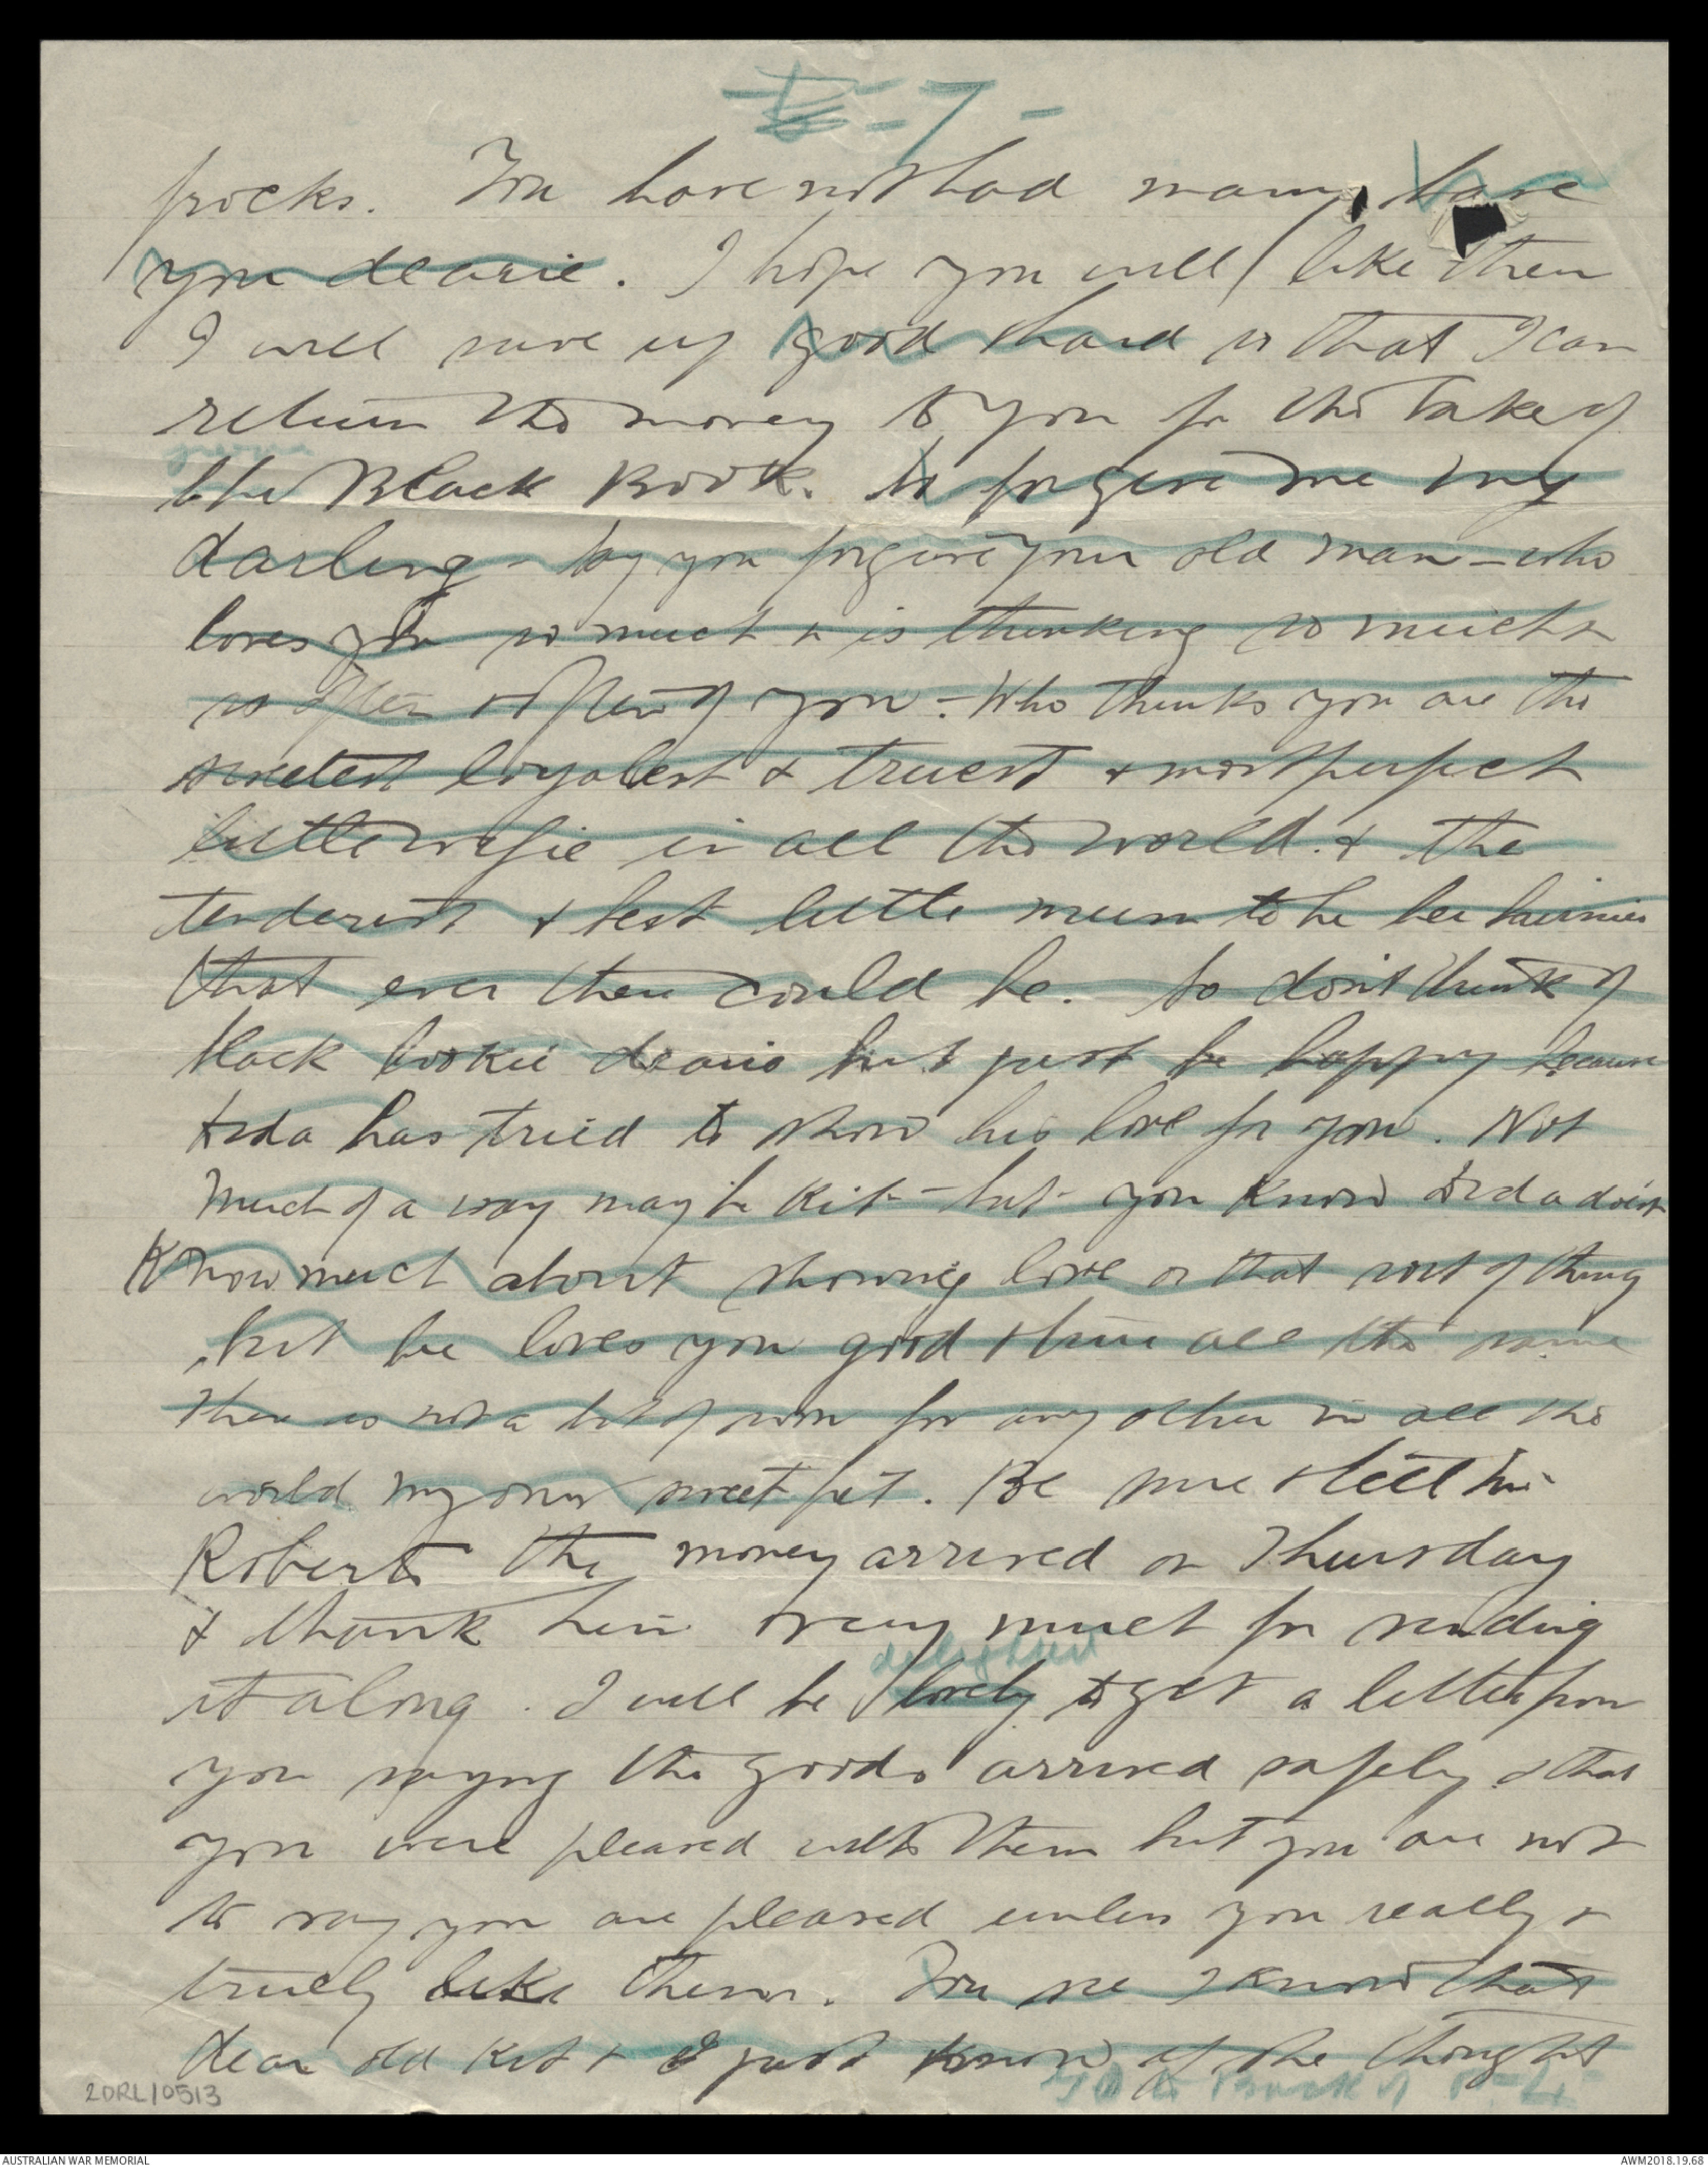 - 7 -
frocks. You have not had many, have
you dearie. I hope you will like them
I will save up good & hard so that I can
return the money to you for the sake of
the Black Book. So forgive me my
darling - say you forgive your old man - who
loves you so much & is thinking so much &
so often & often of you - Who thinks you are the
sweetest loyalest & truest & most perfect
little wifie in all the world. & the
tenderest & best little mum to he her
that ever there could be. So don't think of
black bookie dearie but just be happy because
has tried to show his love for you. Not
much of a way maybe Kit - but you know don't
Know much about showing love or that sort of thing
but he loves you good & true all the same
There is not a bit of room for any other in all the
world my own sweet pet. Be sure & tell Mr
Roberts the money arrived on Thursday
& thank him very much for sending
delighted
it along. I will be lovely to get a letter from
you saying the goods arrived safely & that
you were pleased with them but you are not
to say you are pleased unless you really &
truely like them. You see I know that
dear old Kit & I just know of the thought
Go to Back of P-4-
2DRL/0513
AUSTRALIAN WAR MEMORIAL
AWM2018.19.68